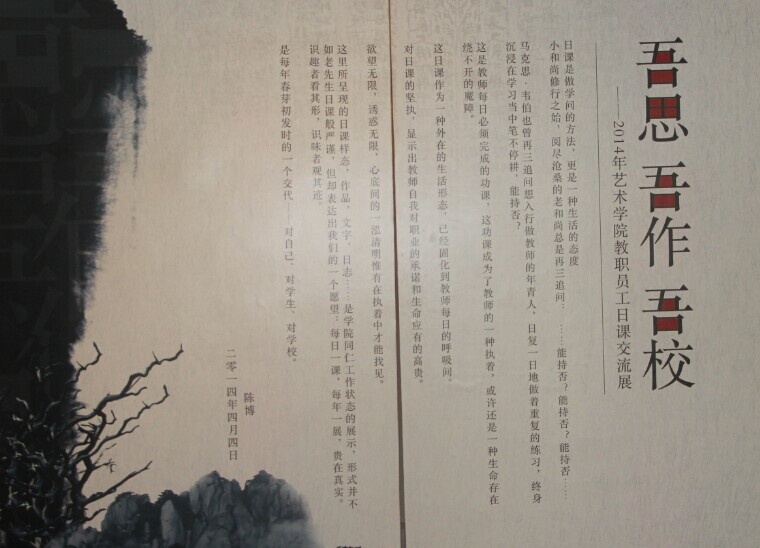 吾思 吾作 吾校
——2014年艺术学院教职员工日课交流展
日课是做学问的方法，更是一种生活的态度
小和尚修行之始，阅尽沧桑的老和尚总是再三追问：……能持否？能持否？能持否……
马克思·韦伯也曾再三追问想入行做教师的年青人，日复一日地做着重复的练习，终身
沉浸在学习当中笔不停耕，能持否？
这是教师每日必须完成的功课，这功课成为了教师的一种执着，或许还是一种生命存在
绕不开的魔障。
这日课作为一种外在的生活形态，已经固化到教师每日的呼吸间。
对日课的坚执，显示出教师自我对职业的承诺和生命应有的高贵。
欲望无限，诱惑无限，心底间的一泓清明惟有在执着中才能找见。
这里所呈现的日课样态，作品，文字，日志……是学院同仁工作状态的展示，形式并不
如老先生日课般严谨，但却表达出我们的一个愿望：每日一课，每年一展，贵在真实。
识趣者看其形，识味者观其迹。
是每年春芽初发时的一个交代——对自己，对学生，对学校。
陈博
二零一四年四月四日